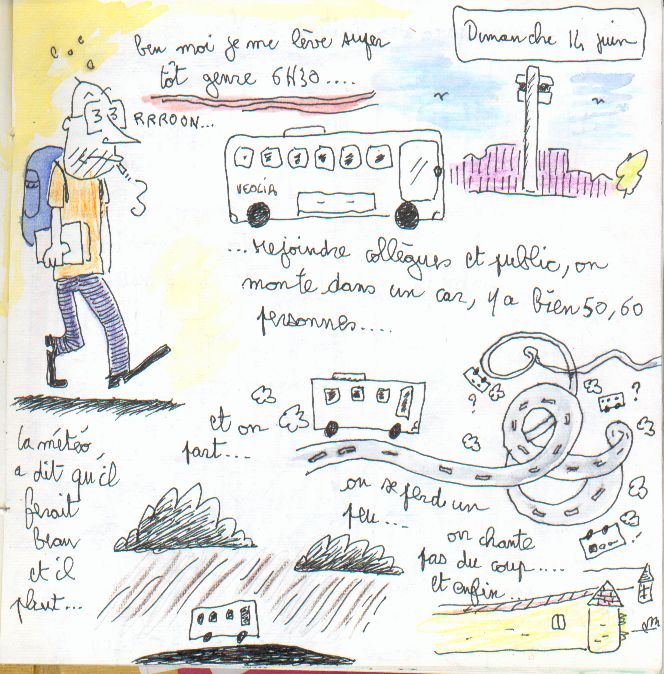 Dimanche 14 juin
ben moi je me lève super
tôt genre 6H30....
RRROON...
VEOLIA
...rejoindre collègues et public, on
monte dans un car, y'a bien 50, 60
personnes....
et on
part...
on se perd un
peu...
?
?
on chante
pas du coup....
et enfin...
la météo,
a dit qu'il
ferait
beau
et il
pleut...